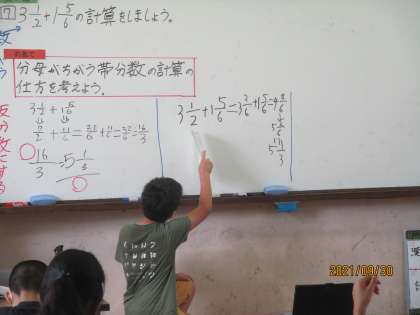 7 3 1/2 + 1 5/6 の計算をしましょう。
めあて
分母がちがう帯分数の計算の
仕方を考えよう。
3 1/2 + 1 5/6
7/2 + 11/6 = 21/6 + 11/6 = 32/6 = 16/3
16/3 = 5 1/3
3 1/2 + 1 5/6 = 3 3/6 + 1 5/6 = 4 8/6
2021/09/30